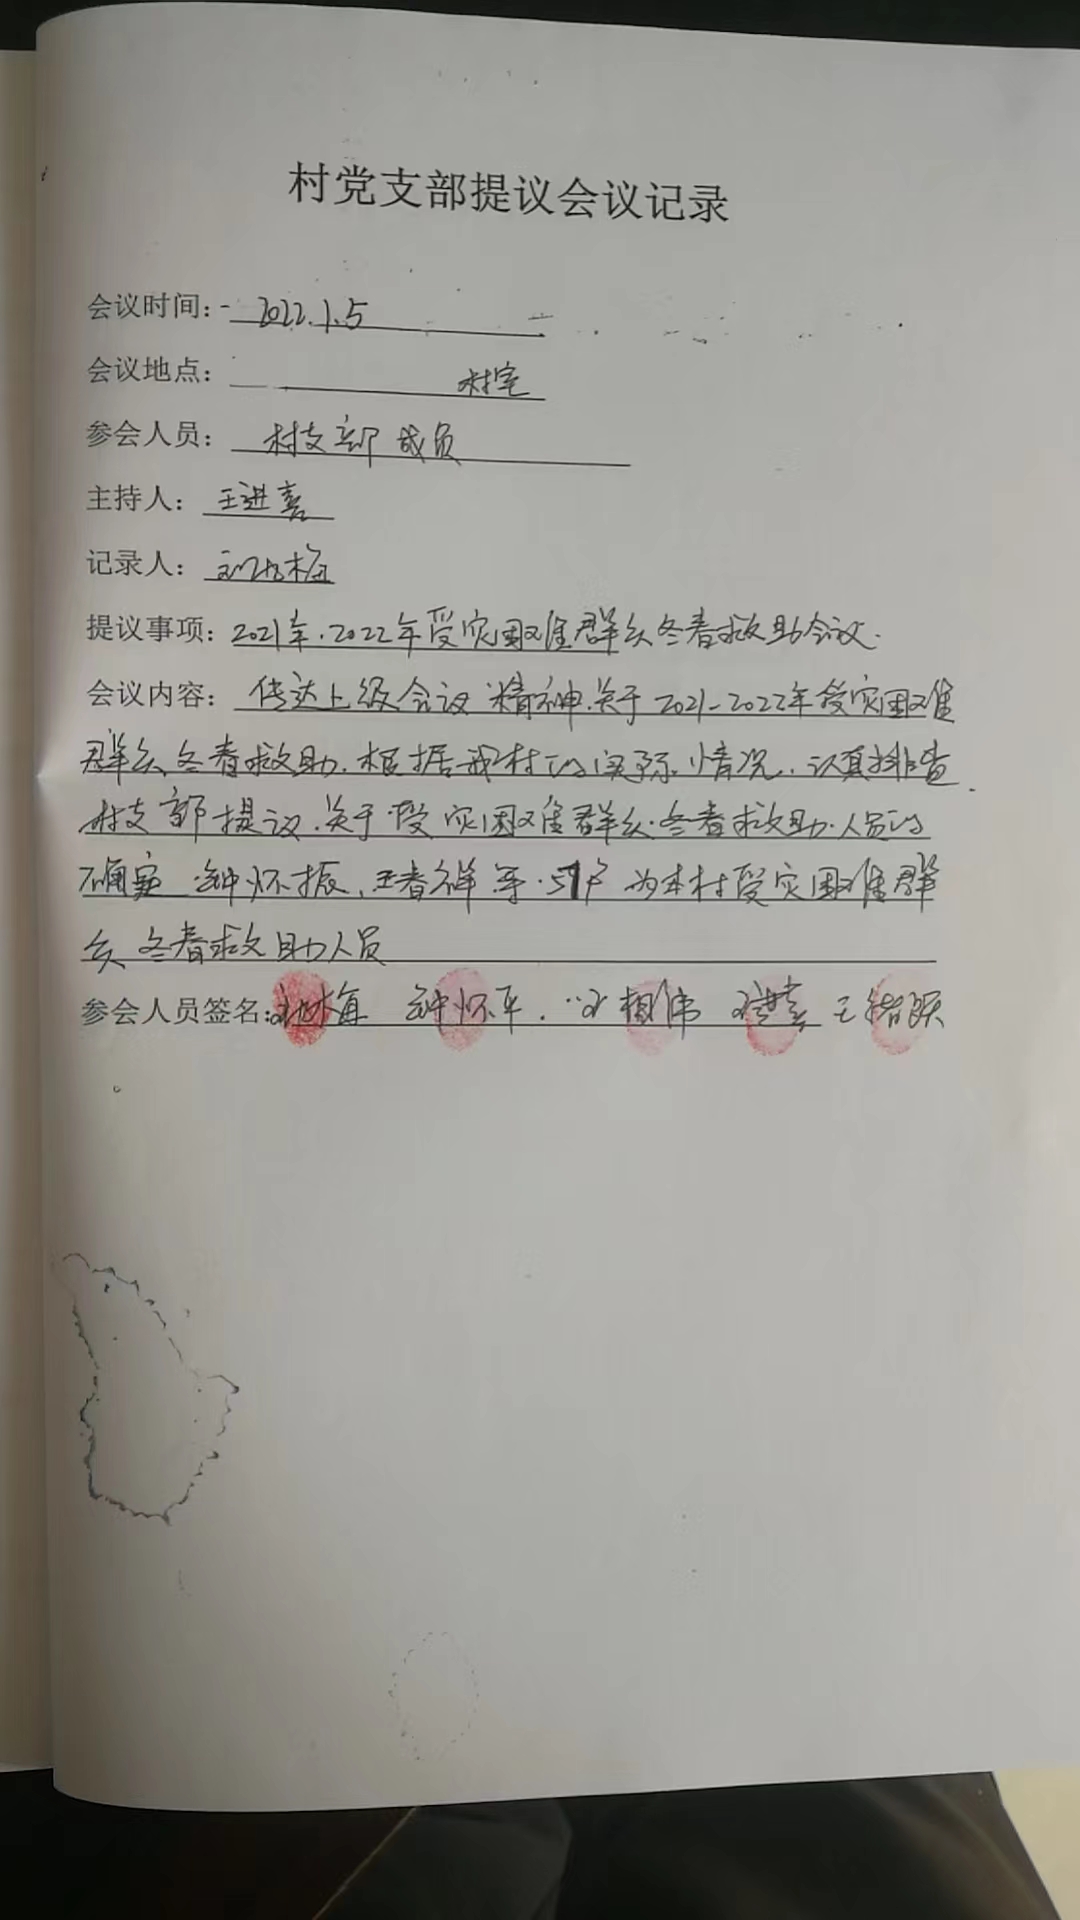 村党支部提议会议记录
会议时间: 2022.1.5
会议地点: 村室
参会人员: 村支部成员
主持人: 王进喜
记录人: 梅
提议事项: 2021年.2022年受灾困难群众冬春救助会议.
会议内容: 传达上级会议精神.关于2021-2022年受灾困难
群众冬春救助.根据我村的实际情况.认真排查.
村支部提议.关于受灾困难群众.冬春救助.人员的
确定.钟怀振、王春祥等.户为本村受灾困难群
众冬春救助人员
参会人员签名: 梅 钟怀平. 相伟 王